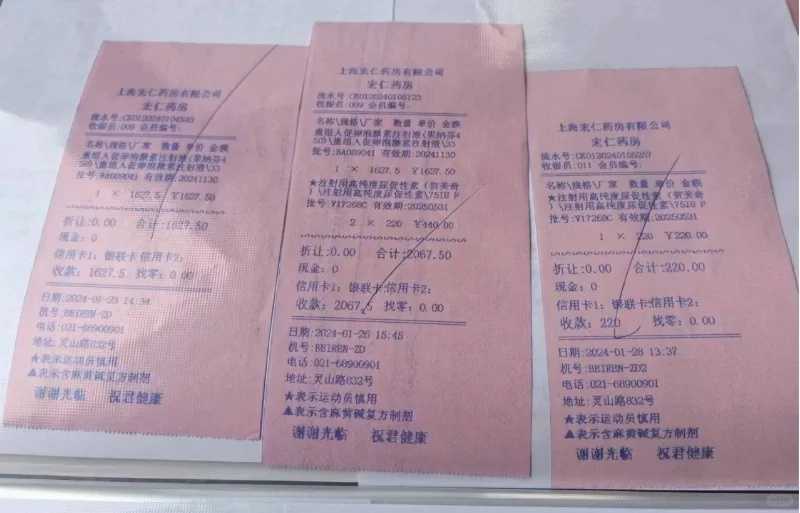 上海宏仁药房有限公司
宏仁药房
收银员:009 会员编号:
名称\规格\厂家 数量 单价 金额
重组人促卵泡激素注射液(果纳芬4
50)\重组人促卵泡激素注射液\33
有效期:20241130
1 × 1627.5 ¥1627.50
折让:0.00 合计:1627.50
现金: 0
信用卡1: 银联卡信用卡2:
收款: 1627.5 找零: 0.00
日期:2024-01-23
机号:BEIREN-ZD
电话:021-68900901
地址:灵山路832号
★表示运动员慎用
▲表示含麻黄碱复方制剂
谢谢光临 祝君健康
上海宏仁药房有限公司
宏仁药房
收银员:009 会员编号:
名称\规格\厂家 数量 单价 金额
重组人促卵泡激素注射液(果纳芬4
50)\重组人促卵泡激素注射液\33
批号:BA089041 有效期:20241130
1 × 1627.5 ¥1627.50
★注射用高纯度尿促性素(贺美奇
)\注射用高纯度尿促性素\75IU P
批号:V17268C 有效期:20250531
2 × 220 ¥440.00
折让:0.00 合计:2067.50
现金: 0
信用卡1: 银联卡信用卡2:
收款: 2067.5 找零: 0.00
日期:2024-01-26 15:45
机号:BEIREN-ZD
电话:021-68900901
地址:灵山路832号
★表示运动员慎用
▲表示含麻黄碱复方制剂
谢谢光临 祝君健康
上海宏仁药房有限公司
宏仁药房
收银员:011 会员编号:
名称\规格\厂家 数量 单价 金额
★注射用高纯度尿促性素(贺美奇
)\注射用高纯度尿促性素\75IU P
批号:V17268C 有效期:20250531
1 × 220 ¥220.00
折让:0.00 合计:220.00
现金: 0
信用卡1: 银联卡信用卡2:
收款: 220 找零: 0.00
日期:2024-01-28 13:37
机号:BEIREN-ZD2
电话:021-68900901
地址:灵山路832号
★表示运动员慎用
▲表示含麻黄碱复方制剂
谢谢光临 祝君健康